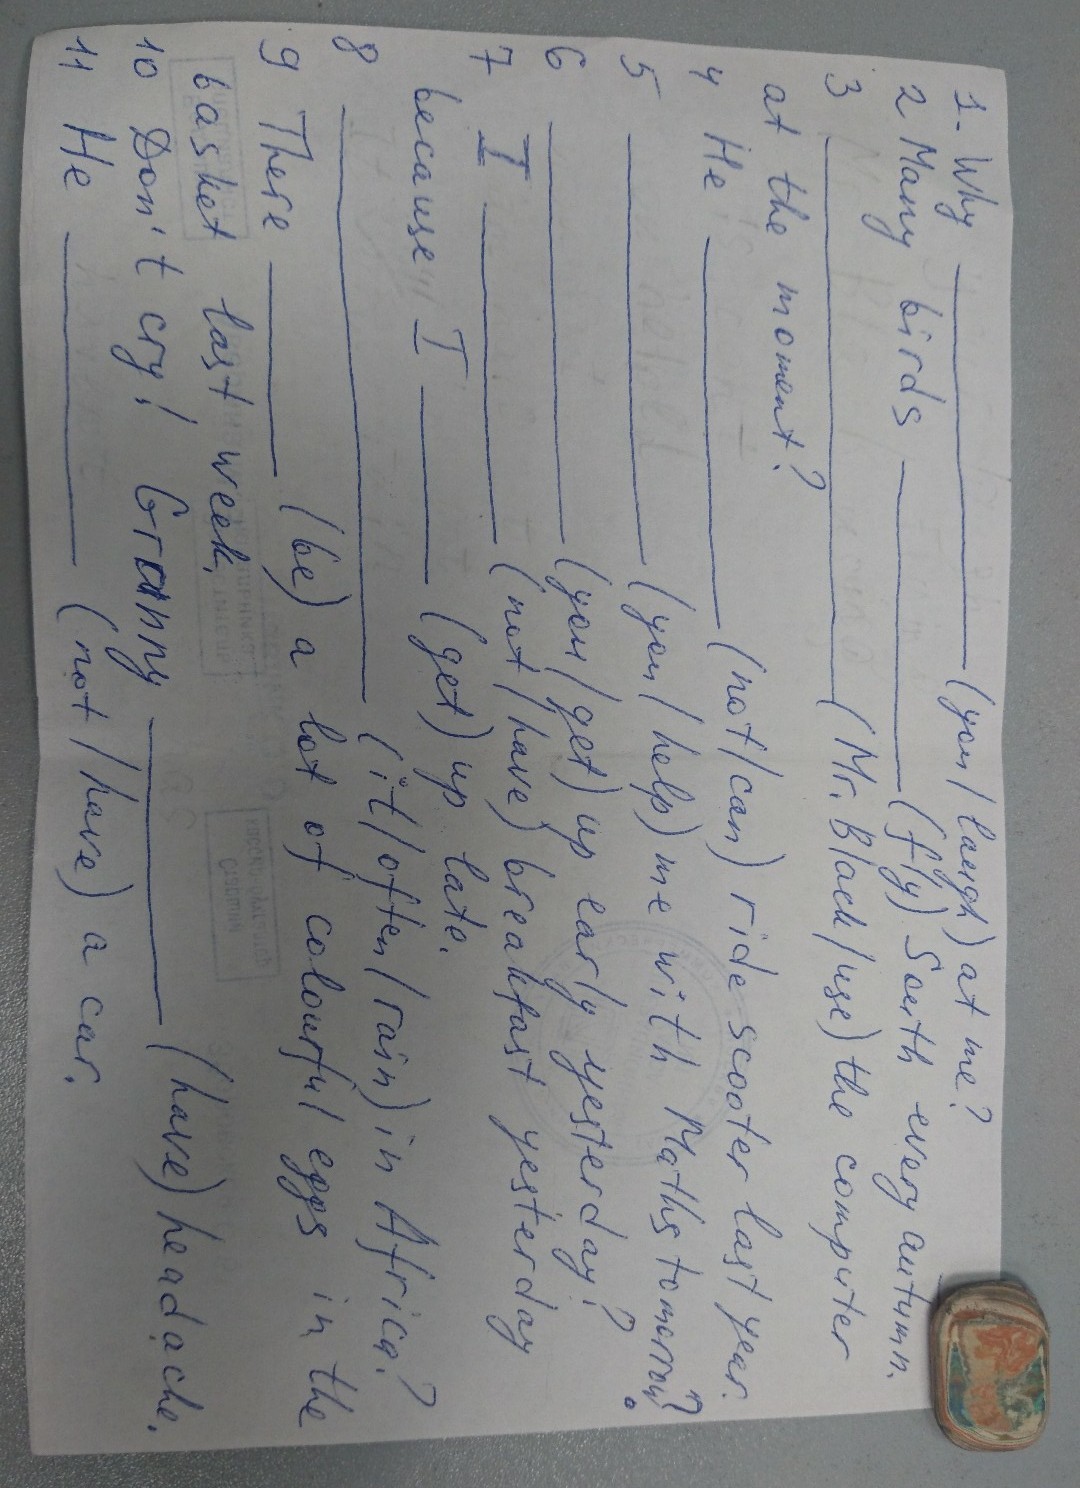 1. Why ________ (you/laugh) at me?
2 Many birds ________ (fly) South every autumn.
3 ________ (Mr. Black/use) the computer
at the moment?
4 He ________ (not/can) ride scooter last year.
5 ________ (you/help) me with Maths tomorrow?
6 ________ (you/get) up early yesterday?
7 I ________ (not/have) breakfast yesterday
because I ________ (get) up late.
8 ________ (it/often/rain) in Africa?
9 There ________ (be) a lot of colourful eggs in the
basket last week.
10 Don't cry! Granny ________ (have) headache.
11 He ________ (not/have) a car.